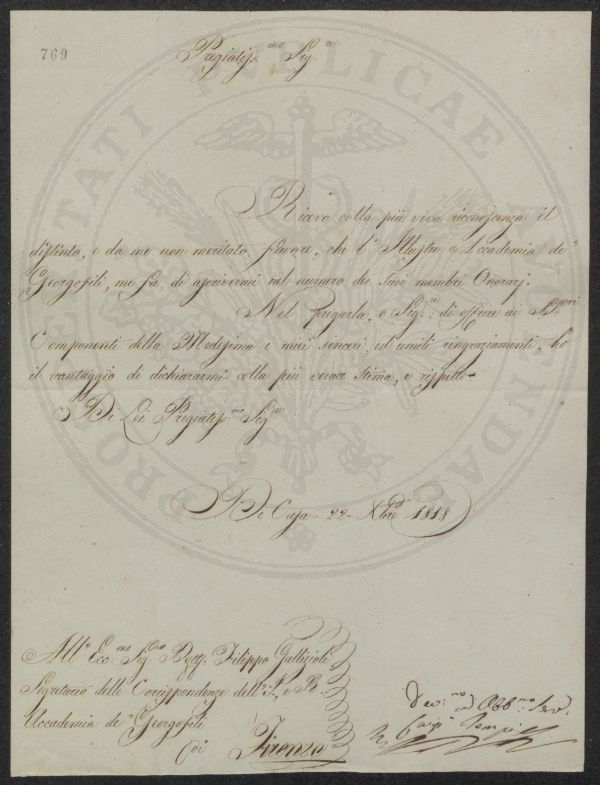 769
Pregiatiss.mo Sig.re
Ricevo colla più viva riconoscenza il
distinto, e da me non meritato favore, che l'Illustre Accademia de'
Georgofili, mi fà, di ascrivermi nel numero dei suoi membri Onorarj.
Nel pregarla, o Sig.re di offrire ai Sig.ri
Componenti della Medesima i miei sinceri, ed umili ringraziamenti, ho
il vantaggio di dichiararmi colla più verace stima, e rispetto
Di Lei Pregiatiss.mo Sig.re
Di Casa 22 Xbre 1818
All' Ecc.mo Sig.re Dott. Filippo Gallizioli
Segretario delle Corrispondenze dell' I. e R.
Accademia de' Georgofili
Firenze
Dev.mo ed Obb.mo Serv.
Luigi Tempi
PROSPERITATI PUBLICAE AUGENDAE